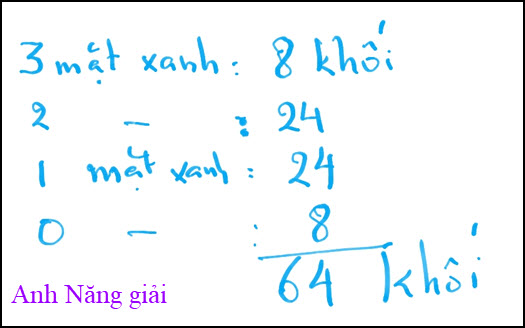 3 mặt xanh: 8 khối
2 – : 24
1 mặt xanh: 24
0 – : 8
64 khối
Anh Năng giải